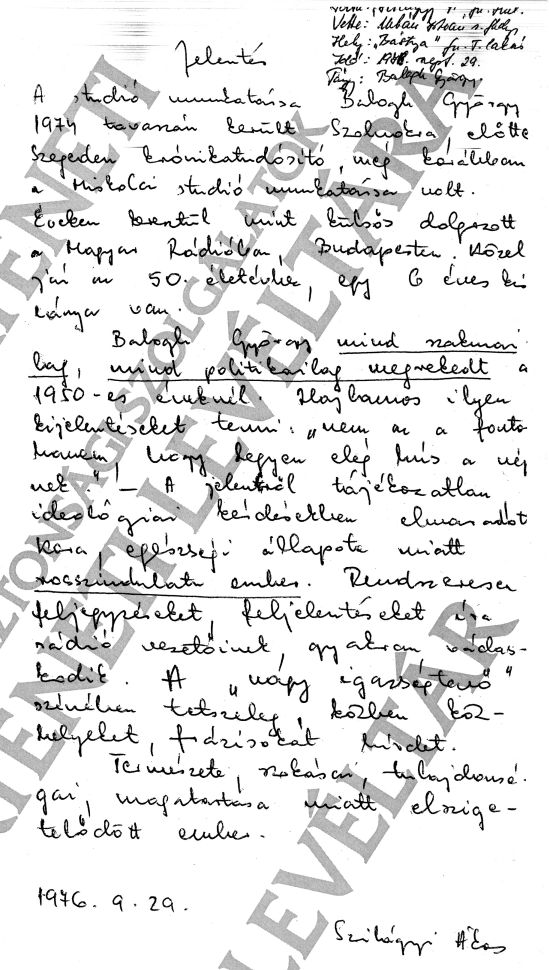 Vette: Urbán István r. fhdgy
Hely: „Bástya” fn. T. lakás
Idő: 1976. szept. 29.
Tárgy: Balogh György
Jelentés
A studió munkatársa Balogh György
1974 tavaszán került Szolnokra, előtte
Szegeden krónikatudósító, még korábban
a Miskolci studió munkatársa volt.
Éveken keresztül mint külsős dolgozott
a Magyar Rádióban, Budapesten. Közel
jár az 50. életévhez, egy 6 éves kis
lánya van.
Balogh György mind szakmai-
lag, mind politikailag megrekedt a
1950-es éveknél. Hajlamos ilyen
kijelentéseket tenni: „nem az a fonto
hanem, hogy legyen elég hús a nép
nek.” – A jelenről tájékozatlan
ideológiai kérdésekben elmaradott
Kora, egészségi állapota miatt
rosszindulatu ember. Rendszeresen
feljegyzéseket, feljelentéseket ír a
rádió vezetőinek, gyakran vádas-
kodik. A „nagy igazságtevő”
színében tetszeleg, közben köz-
helyeket, frázisokat hirdet.
Természete, szokásai, tulajdonsá-
gai, magatartása miatt elszige-
telődött ember.
1976. 9. 29.
Szilágyi Ákos
TÖRTÉNETI LEVÉLTÁRA